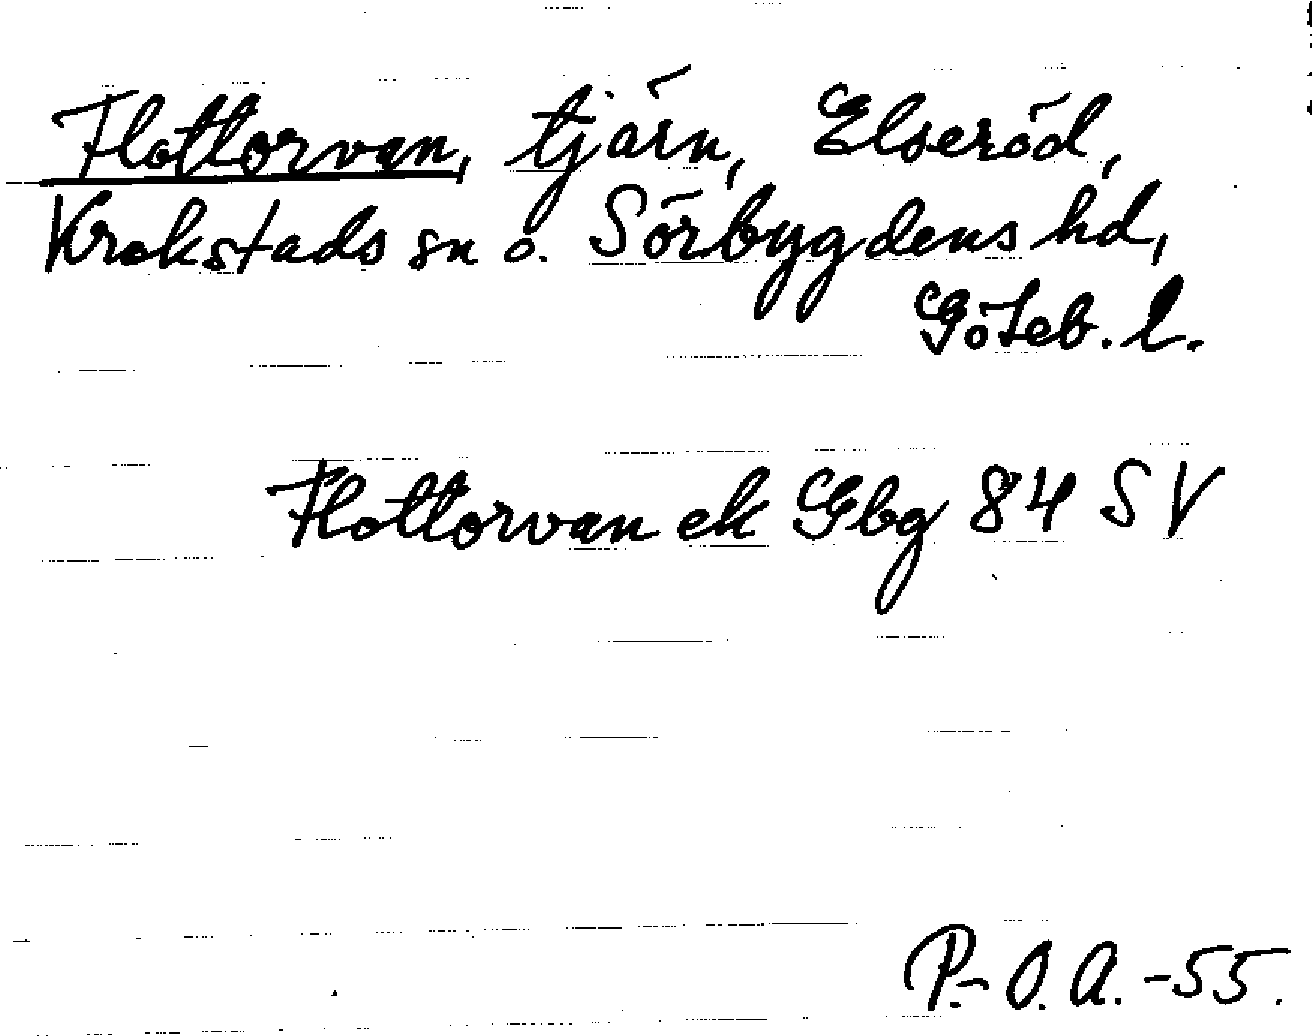 Flottorvan, tjärn, Elseröd,
Krokstads sn o. Sörbygdens hd,
Göteb. l.
Flottorvan ek Gbg 84 SV
P.-O. A. -55.